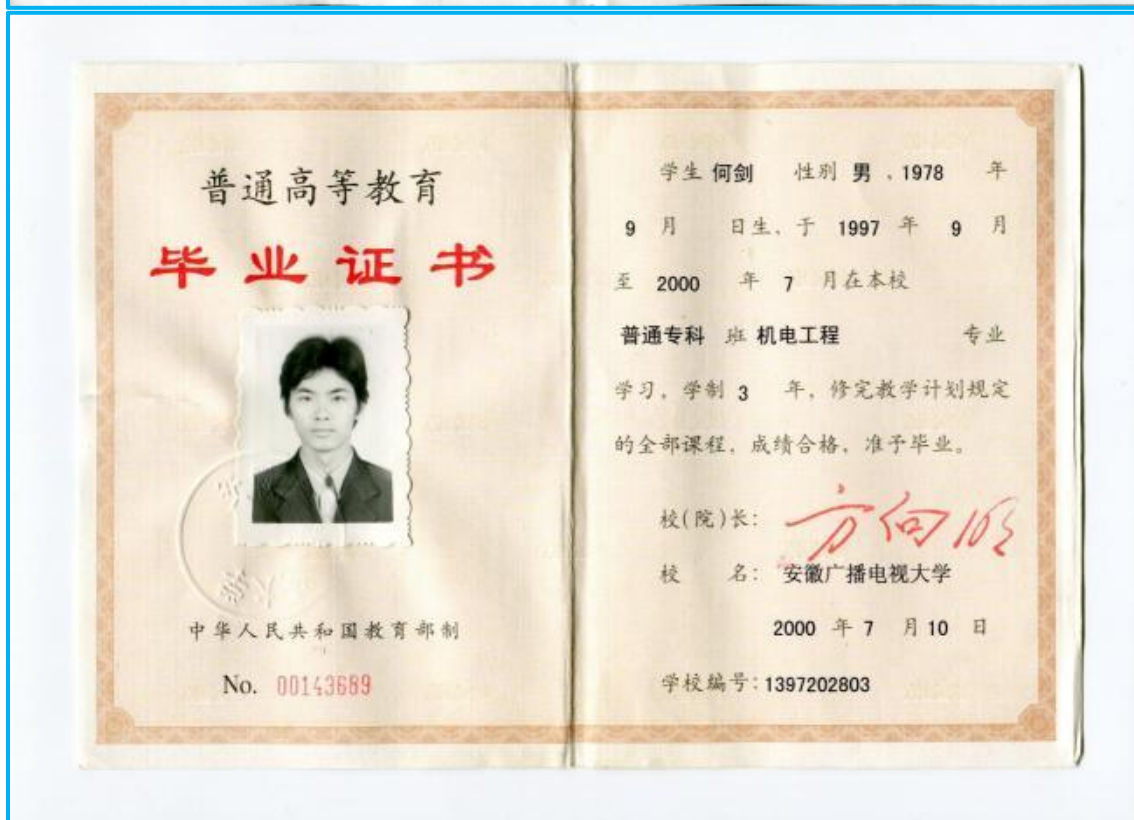 普通高等教育
毕业证书
中华人民共和国教育部制
No. 00143689
学生 何剑 性别 男 、1978 年
9 月 日生、于 1997 年 9 月
至 2000 年 7 月在本校
普通专科 班 机电工程 专业
学习，学制 3 年，修完教学计划规定
的全部课程，成绩合格，准予毕业。
校(院)长： 方向明
校 名： 安徽广播电视大学
2000 年 7 月 10 日
学校编号：1397202803